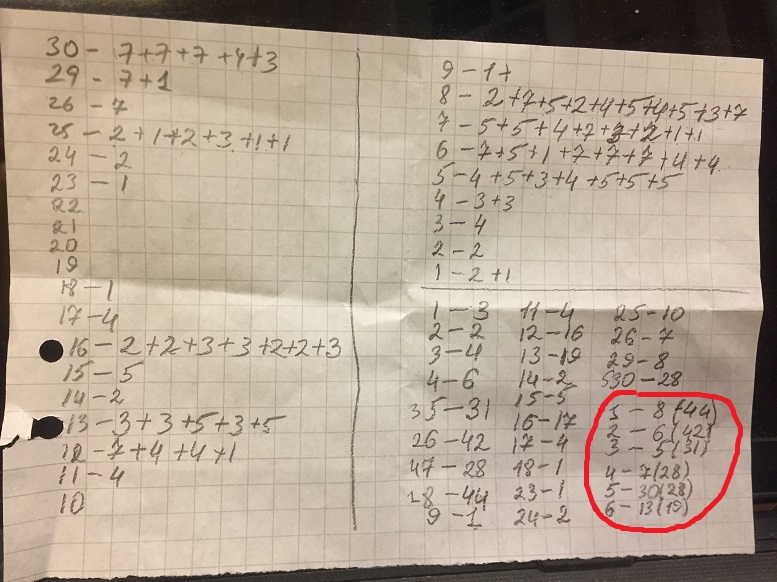 30 - 7+7+7+4+3
29 - 7+1
26 - 7
25 - 2+1+2+3+1+1
24 - 2
23 - 1
22
21
20
19
18 - 1
17 - 4
16 - 2+2+3+3+2+2+3
15 - 5
14 - 2
13 - 3+3+5+3+5
12 - 7+4+4+1
11 - 4
10
9 - 1+
8 - 2+7+5+2+4+5+4+5+3+7
7 - 5+5+4+7+3+2+1+1
6 - 7+5+1+7+7+7+4+4
5 - 4+5+3+4+5+5+5
4 - 3+3
3 - 4
2 - 2
1 - 2+1
1 - 3
2 - 2
3 - 4
4 - 6
35 - 31
26 - 42
47 - 28
18 - 44
9 - 1
11 - 4
12 - 16
13 - 19
14 - 2
15 - 5
16 - 17
17 - 4
18 - 1
23 - 1
24 - 2
25 - 10
26 - 7
29 - 8
530 - 28
1 - 8 (44)
2 - 6 (42)
3 - 5 (31)
4 - 7 (28)
5 - 30 (28)
6 - 13 (19)